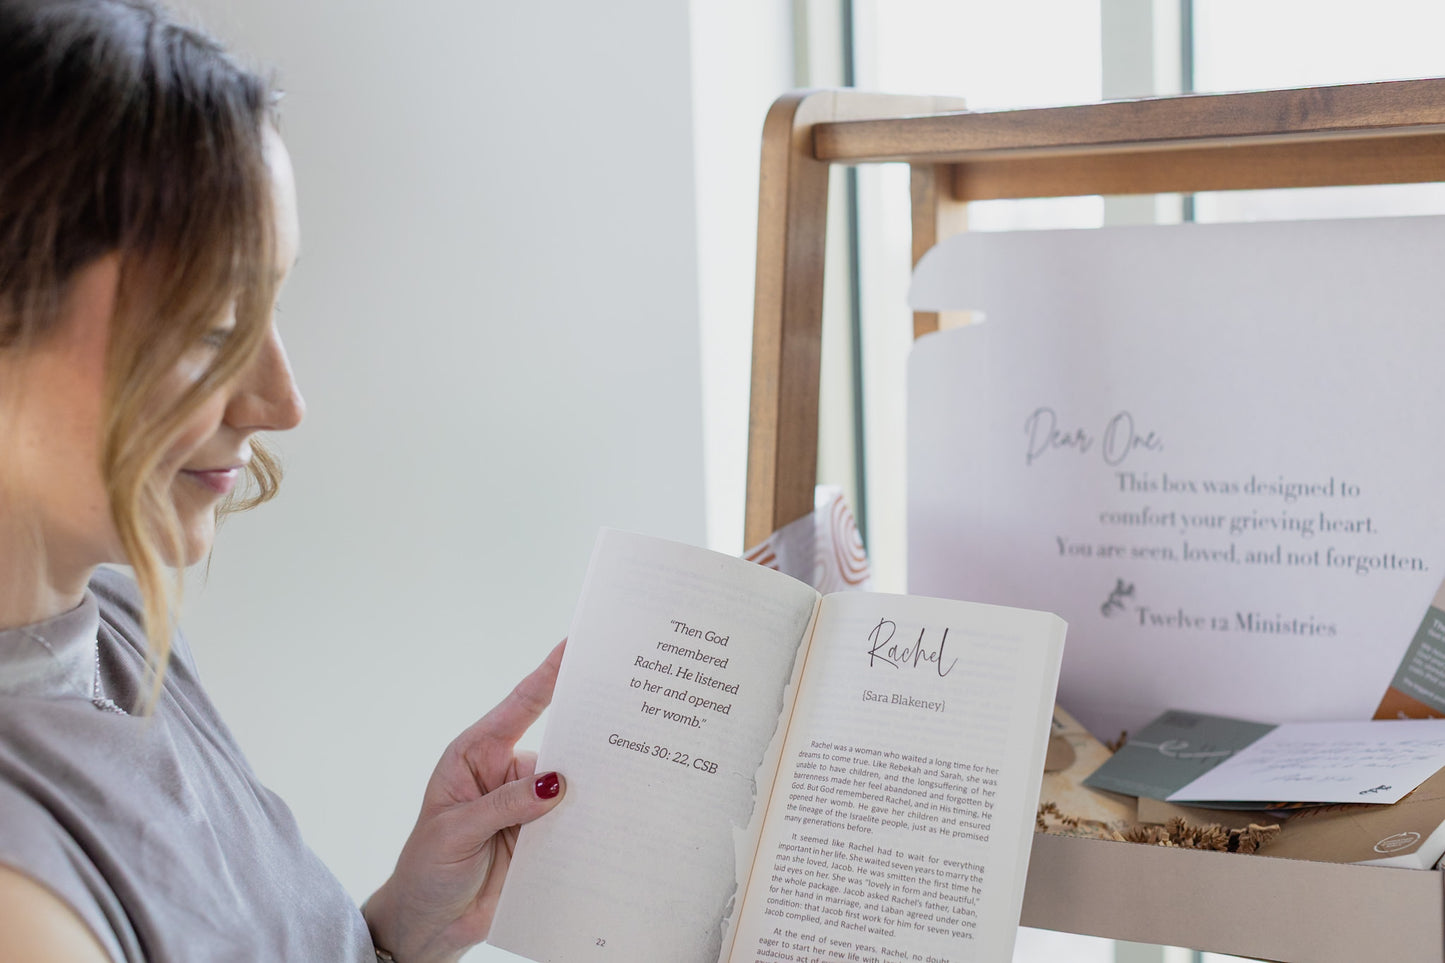 "Then God
remembered
Rachel. He listened
to her and opened
her womb."
Genesis 30: 22, CSB
22
Rachel
{Sara Blakeney}
Rachel was a woman who waited a long time for her
dreams to come true. Like Rebekah and Sarah, she was
unable to have children, and the longsuffering of her
barrenness made her feel abandoned and forgotten by
God. But God remembered Rachel, and in His timing, He
opened her womb. He gave her children and ensured
the lineage of the Israelite people, just as He promised
many generations before.
It seemed like Rachel had to wait for everything
important in her life. She waited seven years to marry the
man she loved, Jacob. He was smitten the first time he
laid eyes on her. She was "lovely in form and beautiful,"
the whole package. Jacob asked Rachel's father, Laban,
for her hand in marriage, and Laban agreed under one
condition: that Jacob first work for him for seven years.
Jacob complied, and Rachel waited.
At the end of seven years, Rachel, no doubt
eager to start her new life with
audacious act of
Dear One,
This box was designed to
comfort your grieving heart.
You are seen, loved, and not forgotten.
Twelve 12 Ministries